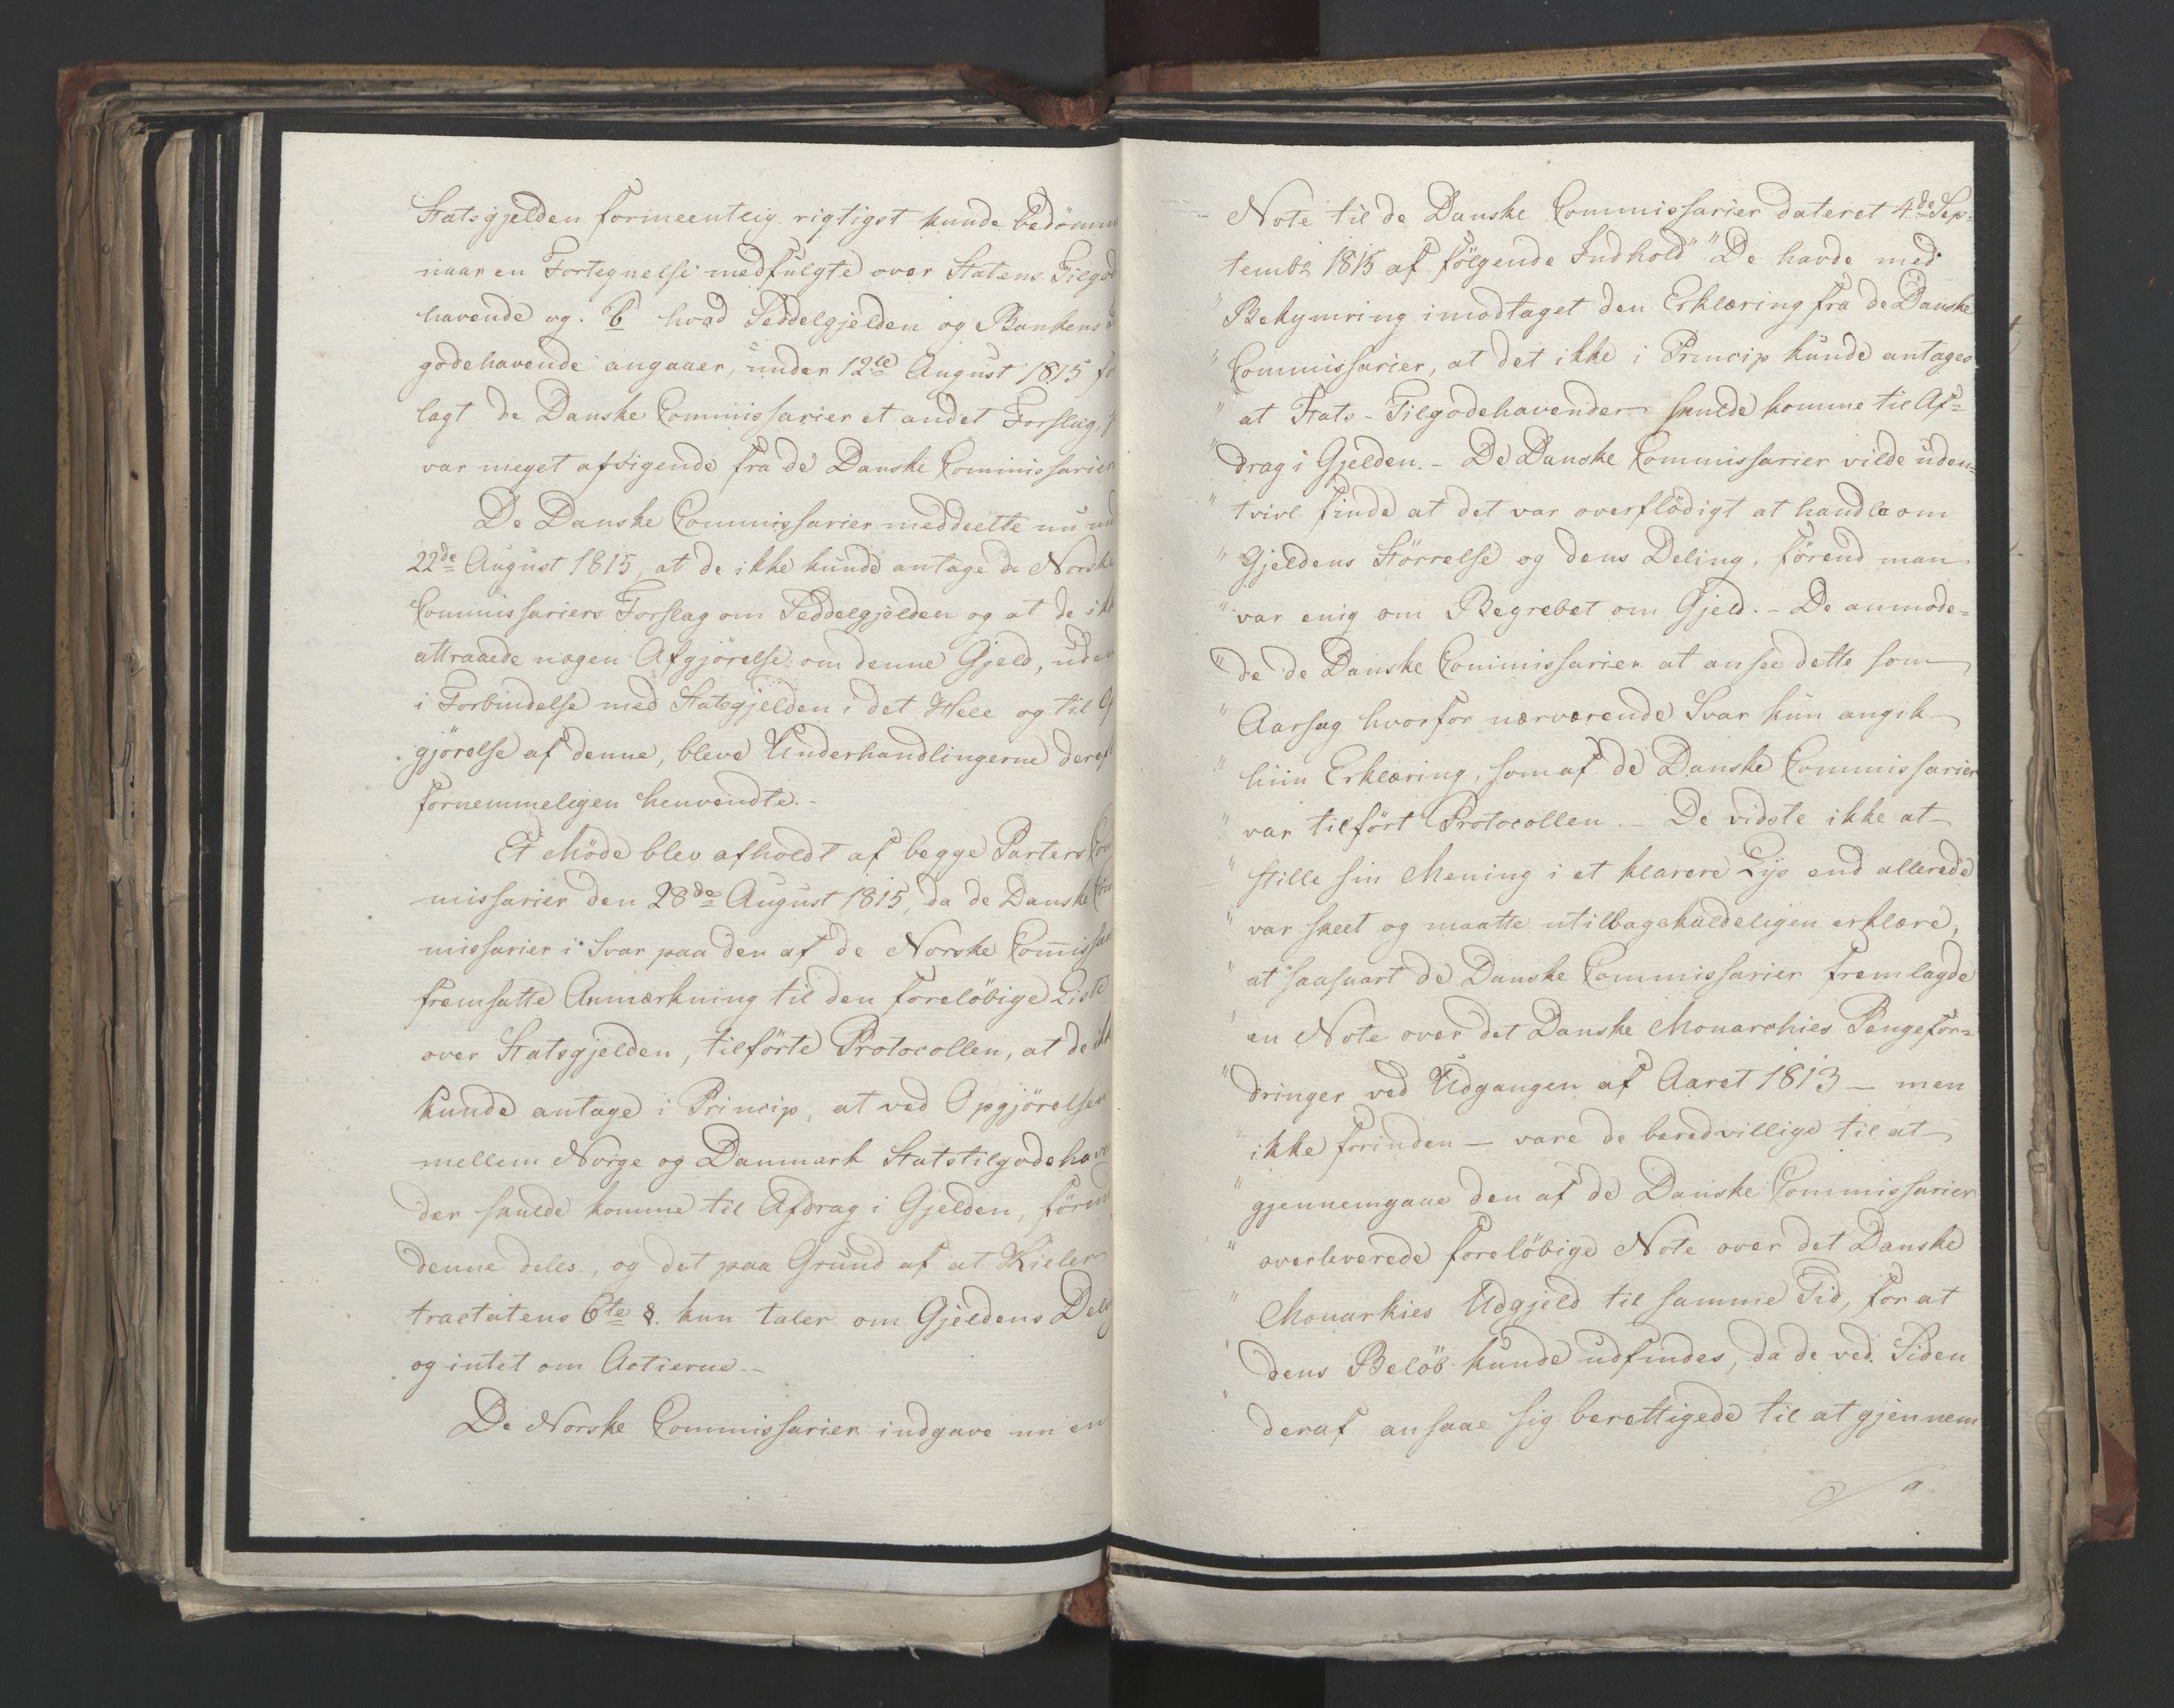 Statsgjelden formeentlig rigtigst kunde bedömme
naar en Fortegnelse medfulgte over Statens Tilgod
havende og. b hvad Seddelgjelden og Bankens
godehavende angaaer, under 12te August 1815
lagt de Danske Commissarier et andet Forslag,
var meget afvigende fra de Danske Commissarier
De Danske Commissarier meddeelte nu
22de August 1815, at de ikke kunde antage de Norske
Commissariers Forslag om Seddelgjelden og at de ikk
attraaede nogen Afgjörelse om denne Gjeld, uden
i Forbindelse med Statsgjelden i det Hele og til Af
gjörelse af denne, bleve Underhandlingerne deref
fornemmeligen henvendte.-
Et Möde blev afholdt af begge Parters Com
missarier den 28de August 1815, da de Danske Com
missarier i Svar paa den af de Norske Commissar
fremsatte Anmærkning til den foreløbige Liste
over Statsgjelden, tilförte Protocollen, at de ikk
kunde antage i Princip, at ved Opgjörelsen
mellem Norge og Danmark Statstilgodehaven
der skulde komme til Afdrag i Gjelden, förend
denne deles, og det paa Grund af at Kieler
tractatens 6te §. kun taler om Gjeldens Del
og intet om Actierne.-
De Norske Commissarier indgave nu en
Note til de Danske Commissarier dateret 4de Sep-
tembr 1815 af fölgende Indhold" "De havde med
" Bekymring imodtaget den Erklæring fra de Danske
" Commissarier, at det ikke i Princip kunde antages
" at Stats-Tilgodehavender skulde komme til Af=
" drag i Gjelden.- De Danske Commissarier vilde uden=
" tvivl finde at det var overflödigt at handle om
" Gjeldens Störrelse og dens Deling, förend man
" var enig om Begrebet om Gjeld.- De anmode=
" de de Danske Commissarier at ansee dette som
" Aarsag hvorfor nærværende Svar kun angik
" hiin Erklæring, som af de Danske Commissarier
" var tilfört Protocollen.- De vidste ikke at
" stille sin Mening i et klarere Lys end allerede
" var skeet og maatte utilbagekaldeligen erklære,
" at saasnart de Danske Commissarier fremlagde
" en Note over det Danske Monarchies Pengefor=
" dringer ved Udgangen af Aaret 1813 - men
" ikke forinden - vare de beredvillige til at
" gjennemgaae den af de Danske Commissarier
" overleverede foreløbige Note over det Danske
" Monarkies Udgjeld til samme Tid, for at
" dens Belöb kunde udfindes, da de ved Siden
" deraf ansaae sig berettigede til at gjennem